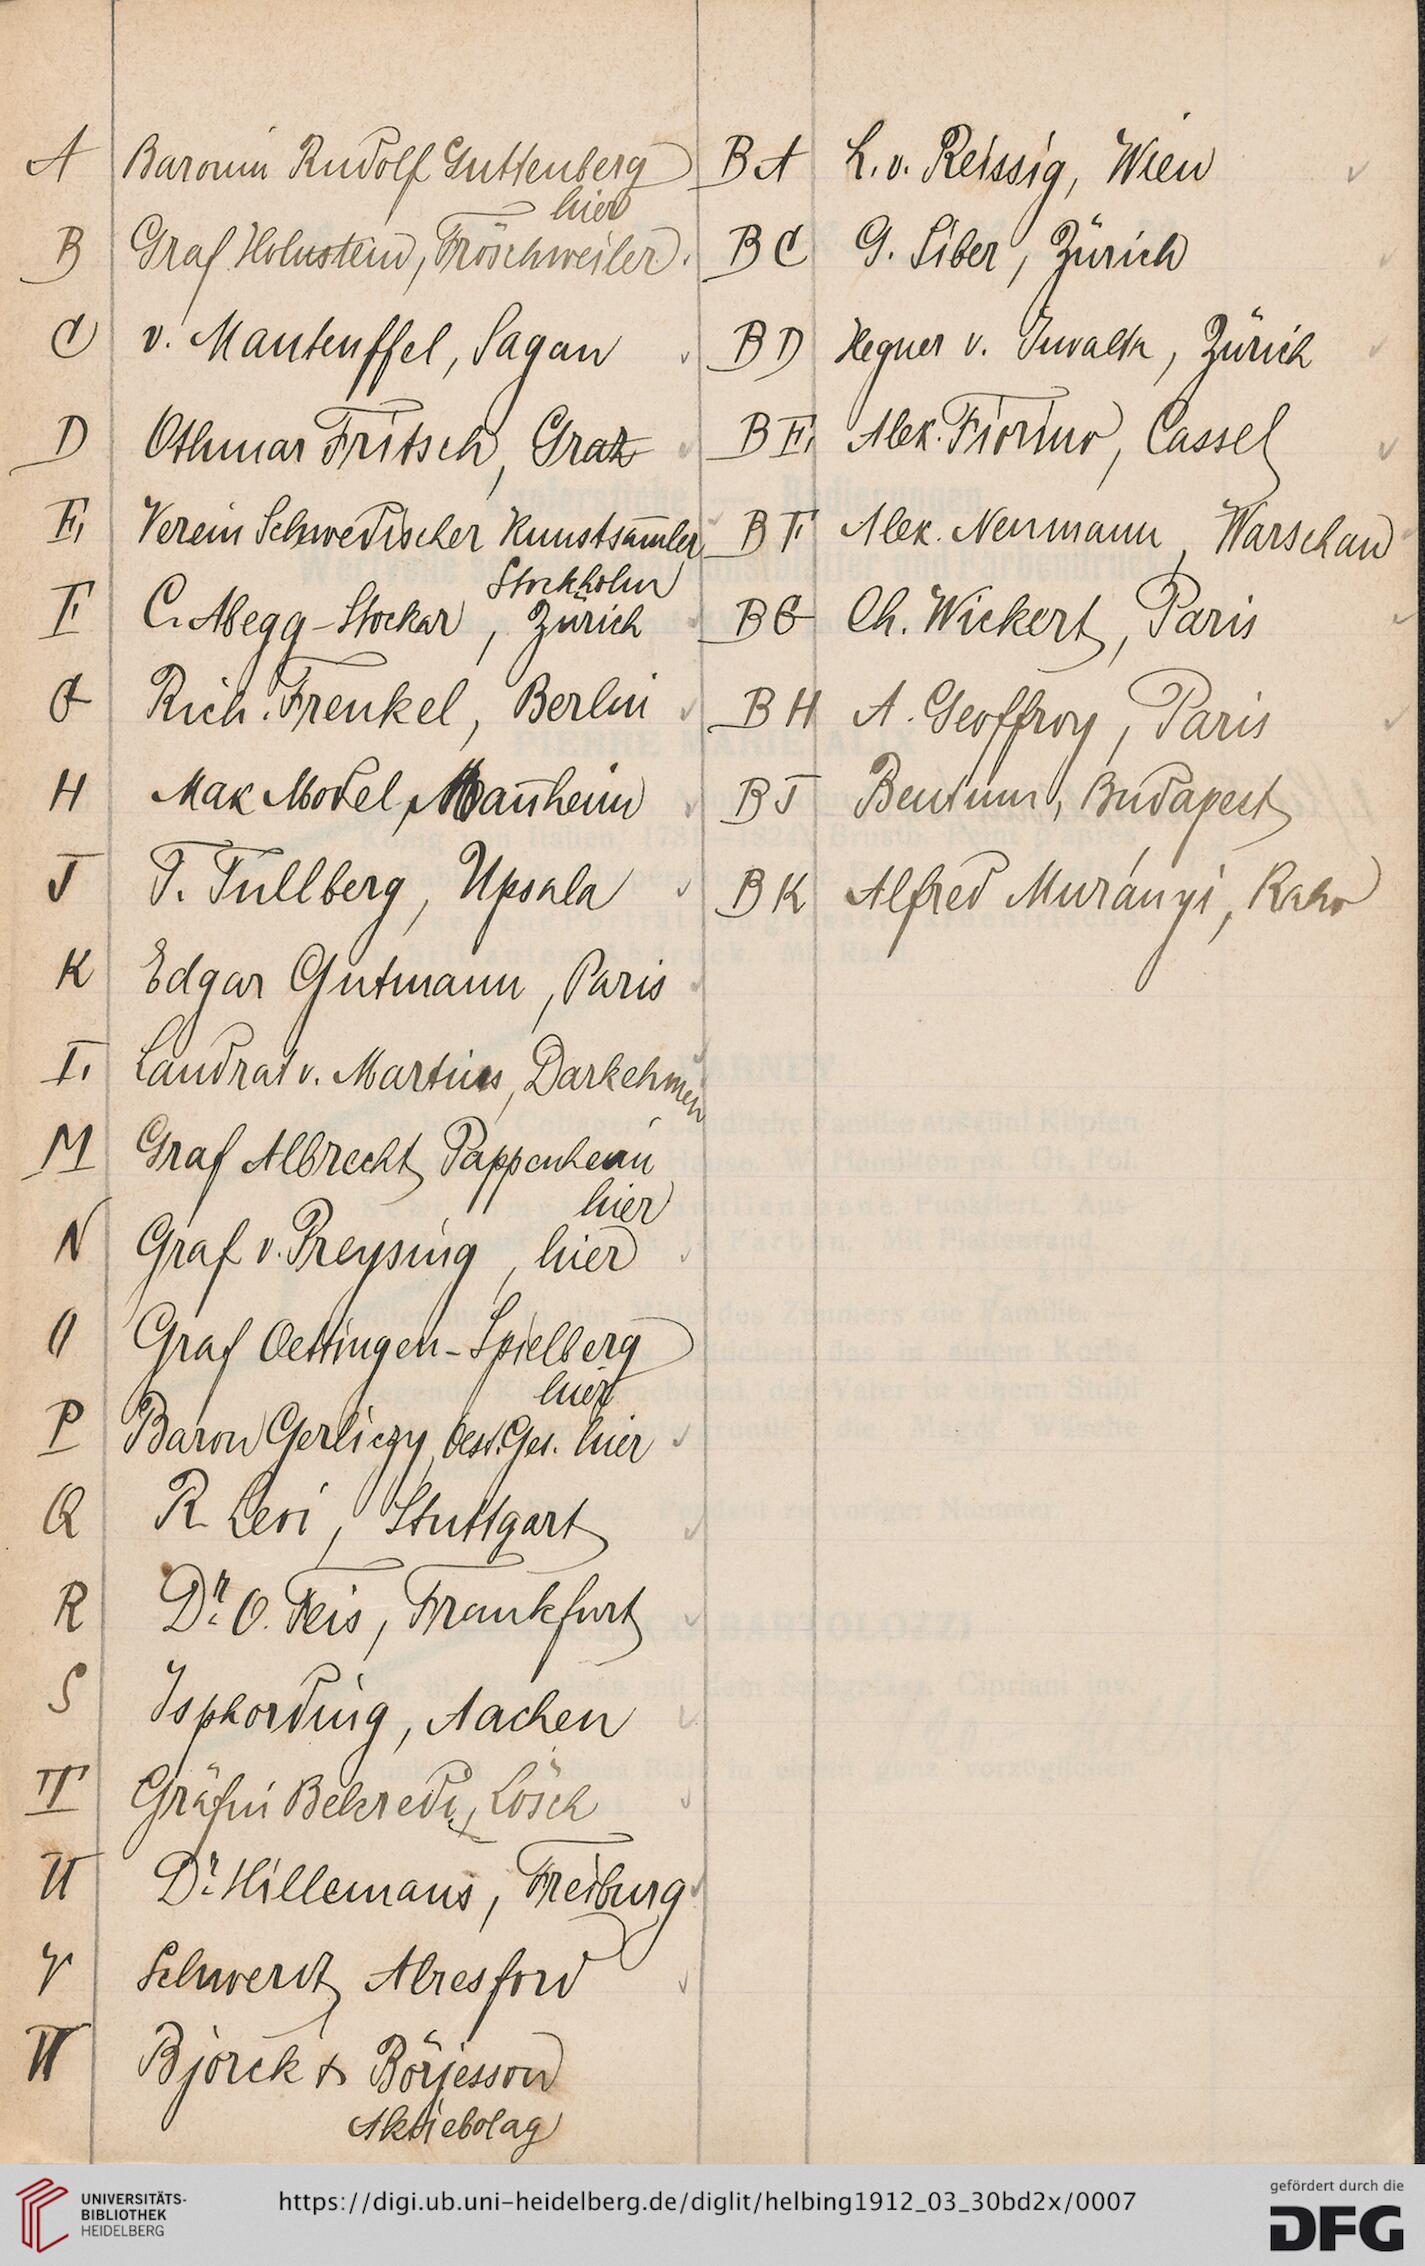 A Baronin Rudolf Guttenberg
hier
B Graf Holnstein, Fröschweiler.
C v. Manteuffel, Sagan
D Othmar Fritsch, Graz
E, Verein Schwedischer Kunstsam̄ler
Stockholm
F C. Abegg-Stockar, Zürich
G Rich. Frenkel, Berlin
H Max Model, Man̄heim
J T. Tullberg, Upsala
K Edgar Gutmann, Paris
L. Landrat v. Martius, Darkehmen
M Graf Albrecht Pappenheim
hier
N Graf v. Preysing, hier
O Graf Oettingen-Spielberg
hier
P Baron Gerliczy, Oest. Ges. hier
Q R Levi, Stuttgart
R Dr. O. Feis, Frankfurt
S Isphording, Aachen
T Gräfin Belcredi, Lösch
U Dr. Hillemans, Freiburg
V Schwerdt, Alresford
W Björck & Börjesson
Aktiebolag
BA L. v. Reissig, Wien
BC G. Siber, Zürich
BD Hegner v. Juvalta, Zürich
BE, Alex. Fiorino, Cassel
BF Alex. Neumann, Warschau
BG Ch. Wickert, Paris
BH A. Geoffroy, Paris
BJ Bentum, Budapest
BK Alfred Murányi, Raho
UNIVERSITÄTS-
BIBLIOTHEK
HEIDELBERG
https://digi.ub.uni-heidelberg.de/diglit/helbing1912_03_30bd2x/0007
gefördert durch die
DFG